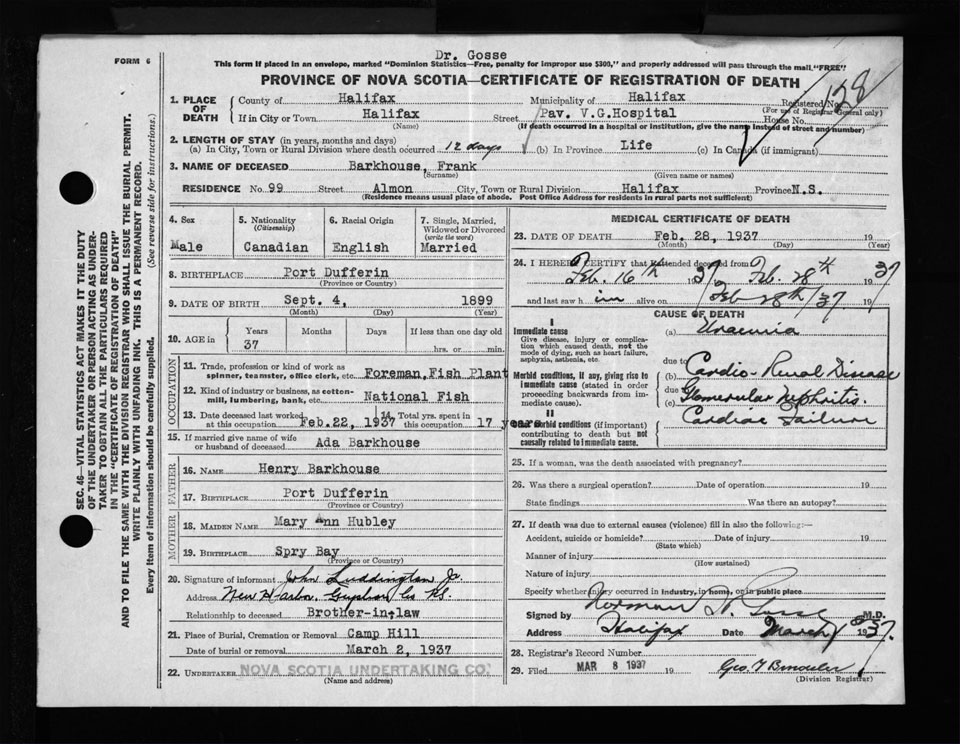 Dr. Gosse
FORM 6
This form if placed in an envelope, marked "Dominion Statistics—Free, penalty for improper use $300," and properly addressed will pass through the mail "FREE"
PROVINCE OF NOVA SCOTIA—CERTIFICATE OF REGISTRATION OF DEATH
128
1. PLACE OF DEATH
County of Halifax Municipality of Halifax Registered No.
(For use of Registrar General only)
If in City or Town Halifax Street Pav. V.G.Hospital House No.
(Name) (If death occurred in a hospital or institution, give the name instead of street and number)
2. LENGTH OF STAY (in years, months and days)
(a) In City, Town or Rural Division where death occurred 12 days (b) In Province Life (c) In Canada (if immigrant)
3. NAME OF DECEASED Barkhouse, Frank
(Surname) (Given name or names)
RESIDENCE No. 99 Street Almon City, Town or Rural Division Halifax Province N.S.
(Residence means usual place of abode. Post Office Address for residents in rural parts not sufficient)
4. Sex
Male
5. Nationality
(Citizenship)
Canadian
6. Racial Origin
English
7. Single, Married, Widowed or Divorced
(write the word)
Married
8. BIRTHPLACE Port Dufferin
(Province or Country)
9. DATE OF BIRTH Sept. 4, 1899
(Month) (Day) (Year)
10. AGE in
Years Months Days If less than one day old
37 hrs. or min.
OCCUPATION
11. Trade, profession or kind of work as spinner, teamster, office clerk, etc. Foreman, Fish Plant
12. Kind of industry or business, as cotton-mill, lumbering, bank, etc. National Fish
13. Date deceased last worked at this occupation Feb.22, 1937
14. Total yrs. spent in this occupation 17 years
15. If married give name of wife or husband of deceased Ada Barkhouse
FATHER
16. NAME Henry Barkhouse
17. BIRTHPLACE Port Dufferin
(Province or Country)
MOTHER
18. MAIDEN NAME Mary Ann Hubley
19. BIRTHPLACE Spry Bay
(Province or Country)
20. Signature of informant John Luddington Jr.
Address New Harbor, Guysboro Co N.S.
Relationship to deceased Brother-in;law
21. Place of Burial, Cremation or Removal Camp Hill
Date of burial or removal March 2, 1937
22. UNDERTAKER NOVA SCOTIA UNDERTAKING CO.
(Name and address)
MEDICAL CERTIFICATE OF DEATH
23. DATE OF DEATH Feb. 28, 1937 19
(Month) (Day) (Year)
24. I HEREBY CERTIFY that I attended deceased from
Feb. 16th 1937 Feb. 28th 1937
and last saw him alive on Feb 28th/37 19
CAUSE OF DEATH
I
Immediate cause
Give disease, injury or complication which caused death, not the mode of dying, such as heart failure, asphyxia, asthenia, etc.
(a) Uraemia
due to
Morbid conditions, if any, giving rise to immediate cause (stated in order proceeding backwards from immediate cause).
(b) Cardio-Renal Disease
due
Glomerular Nephritis.
(c)
II
Other Morbid conditions (if important) contributing to death but not causally related to immediate cause.
Cardiac Failure
25. If a woman, was the death associated with pregnancy?
26. Was there a surgical operation? Date of operation 19
State findings Was there an autopsy?
27. If death was due to external causes (violence) fill in also the following:—
Accident, suicide or homicide? Date of injury 19
(State which)
Manner of injury
(How sustained)
Nature of injury
Specify whether injury occurred in industry, in home, or in public place
Signed by Norman H. Gosse M.D.
Address Halifax Date March 1937.
28. Registrar's Record Number
29. Filed MAR 8 1937 19
(Division Registrar)
SEC. 46—VITAL STATISTICS ACT MAKES IT THE DUTY
OF THE UNDERTAKER OR PERSON ACTING AS UNDERTAKER TO OBTAIN ALL THE PARTICULARS REQUIRED
IN THE "CERTIFICATE OF REGISTRATION OF DEATH"
AND TO FILE THE SAME WITH THE DIVISION REGISTRAR WHO SHALL ISSUE THE BURIAL PERMIT.
WRITE PLAINLY WITH UNFADING INK. THIS IS A PERMANENT RECORD.
Every item of information should be carefully supplied. (See reverse side for instructions.)